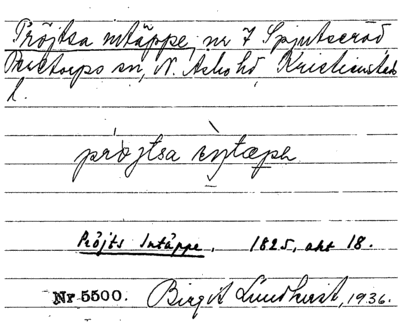 Pröjtsa intäppe, nr 7 Spjutseröd
Riseberga sn, N. Åsbo hd, Kristianstads
l.
Pröjts Intäppe. 1825, akt 18.
Nr 5500. Birgit Lundkvist, 1936.